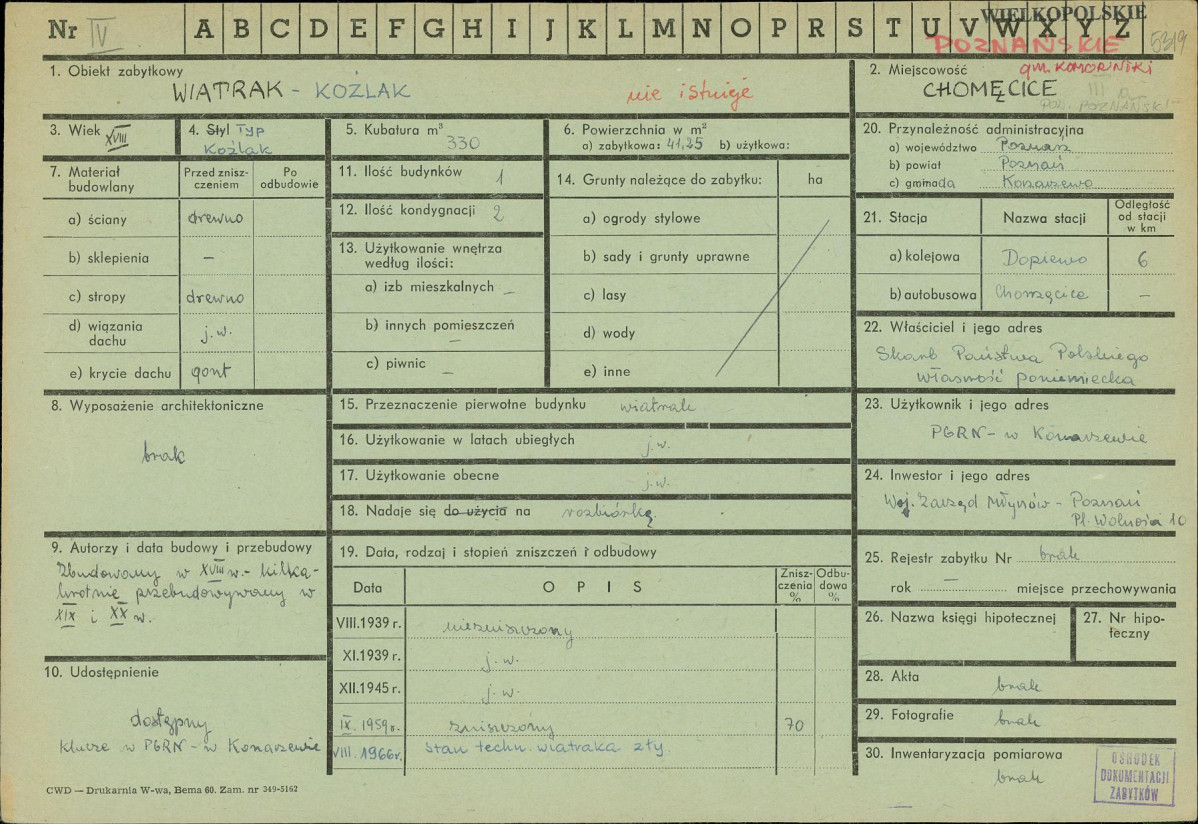 Nr IV A B C D E F G H I J K L M N O P R S T U V W X Y Z
WIELKOPOLSKIE
POZNAŃSKIE
5319
1. Obiekt zabytkowy
WIATRAK - KOŹLAK
nie istnieje
2. Miejscowość
gm. KOMORNIKI
CHOMĘCICE
POW. POZNAŃSKI
3. Wiek XVIII
4. Styl Typ
Koźlak
5. Kubatura m³
330
6. Powierzchnia w m²
a) zabytkowa: 41,25 b) użytkowa:
7. Materiał budowlany
Przed zniszczeniem
Po odbudowie
a) ściany drewno
b) sklepienia –
c) stropy drewno
d) wiązania dachu j.w.
e) krycie dachu gont
8. Wyposażenie architektoniczne
brak
9. Autorzy i data budowy i przebudowy
Zbudowany w XVIII w. - kilka-
krotnie przebudowywany w
XIX i XX w.
10. Udostępnienie
dostępny
klucze w PGRN - w Konarzewie
11. Ilość budynków 1
12. Ilość kondygnacji 2
13. Użytkowanie wnętrza
według ilości:
a) izb mieszkalnych –
b) innych pomieszczeń
–
c) piwnic –
14. Grunty należące do zabytku: ha
a) ogrody stylowe
b) sady i grunty uprawne
c) lasy
d) wody
e) inne
15. Przeznaczenie pierwotne budynku wiatrak
16. Użytkowanie w latach ubiegłych j.w.
17. Użytkowanie obecne j.w.
18. Nadaje się do użycia na rozbiórkę
19. Data, rodzaj i stopień zniszczeń i odbudowy
Data O P I S Zniszczenia % Odbudowa %
VIII.1939 r. niezniszczony
XI.1939 r. j.w.
XII.1945 r. j.w.
IX.1959 r. zniszczony 70
VIII.1966 r. stan techn. wiatraka zły.
20. Przynależność administracyjna
a) województwo Poznań
b) powiat Poznań
c) gminada Konarzewo
21. Stacja Nazwa stacji Odległość od stacji w km
a) kolejowa Dopiewo 6
b) autobusowa Chomęcice –
22. Właściciel i jego adres
Skarb Państwa Polskiego
własność poniemiecka
23. Użytkownik i jego adres
PGRN - w Konarzewie
24. Inwestor i jego adres
Woj. Zarząd Młynów - Poznań
Pl. Wolności 10
25. Rejestr zabytku Nr brak
rok – miejsce przechowywania
26. Nazwa księgi hipotecznej
27. Nr hipoteczny
28. Akta brak
29. Fotografie brak
30. Inwentaryzacja pomiarowa
brak
OŚRODEK
DOKUMENTACJI
ZABYTKÓW
CWD — Drukarnia W-wa, Bema 60. Zam. nr 349-5162